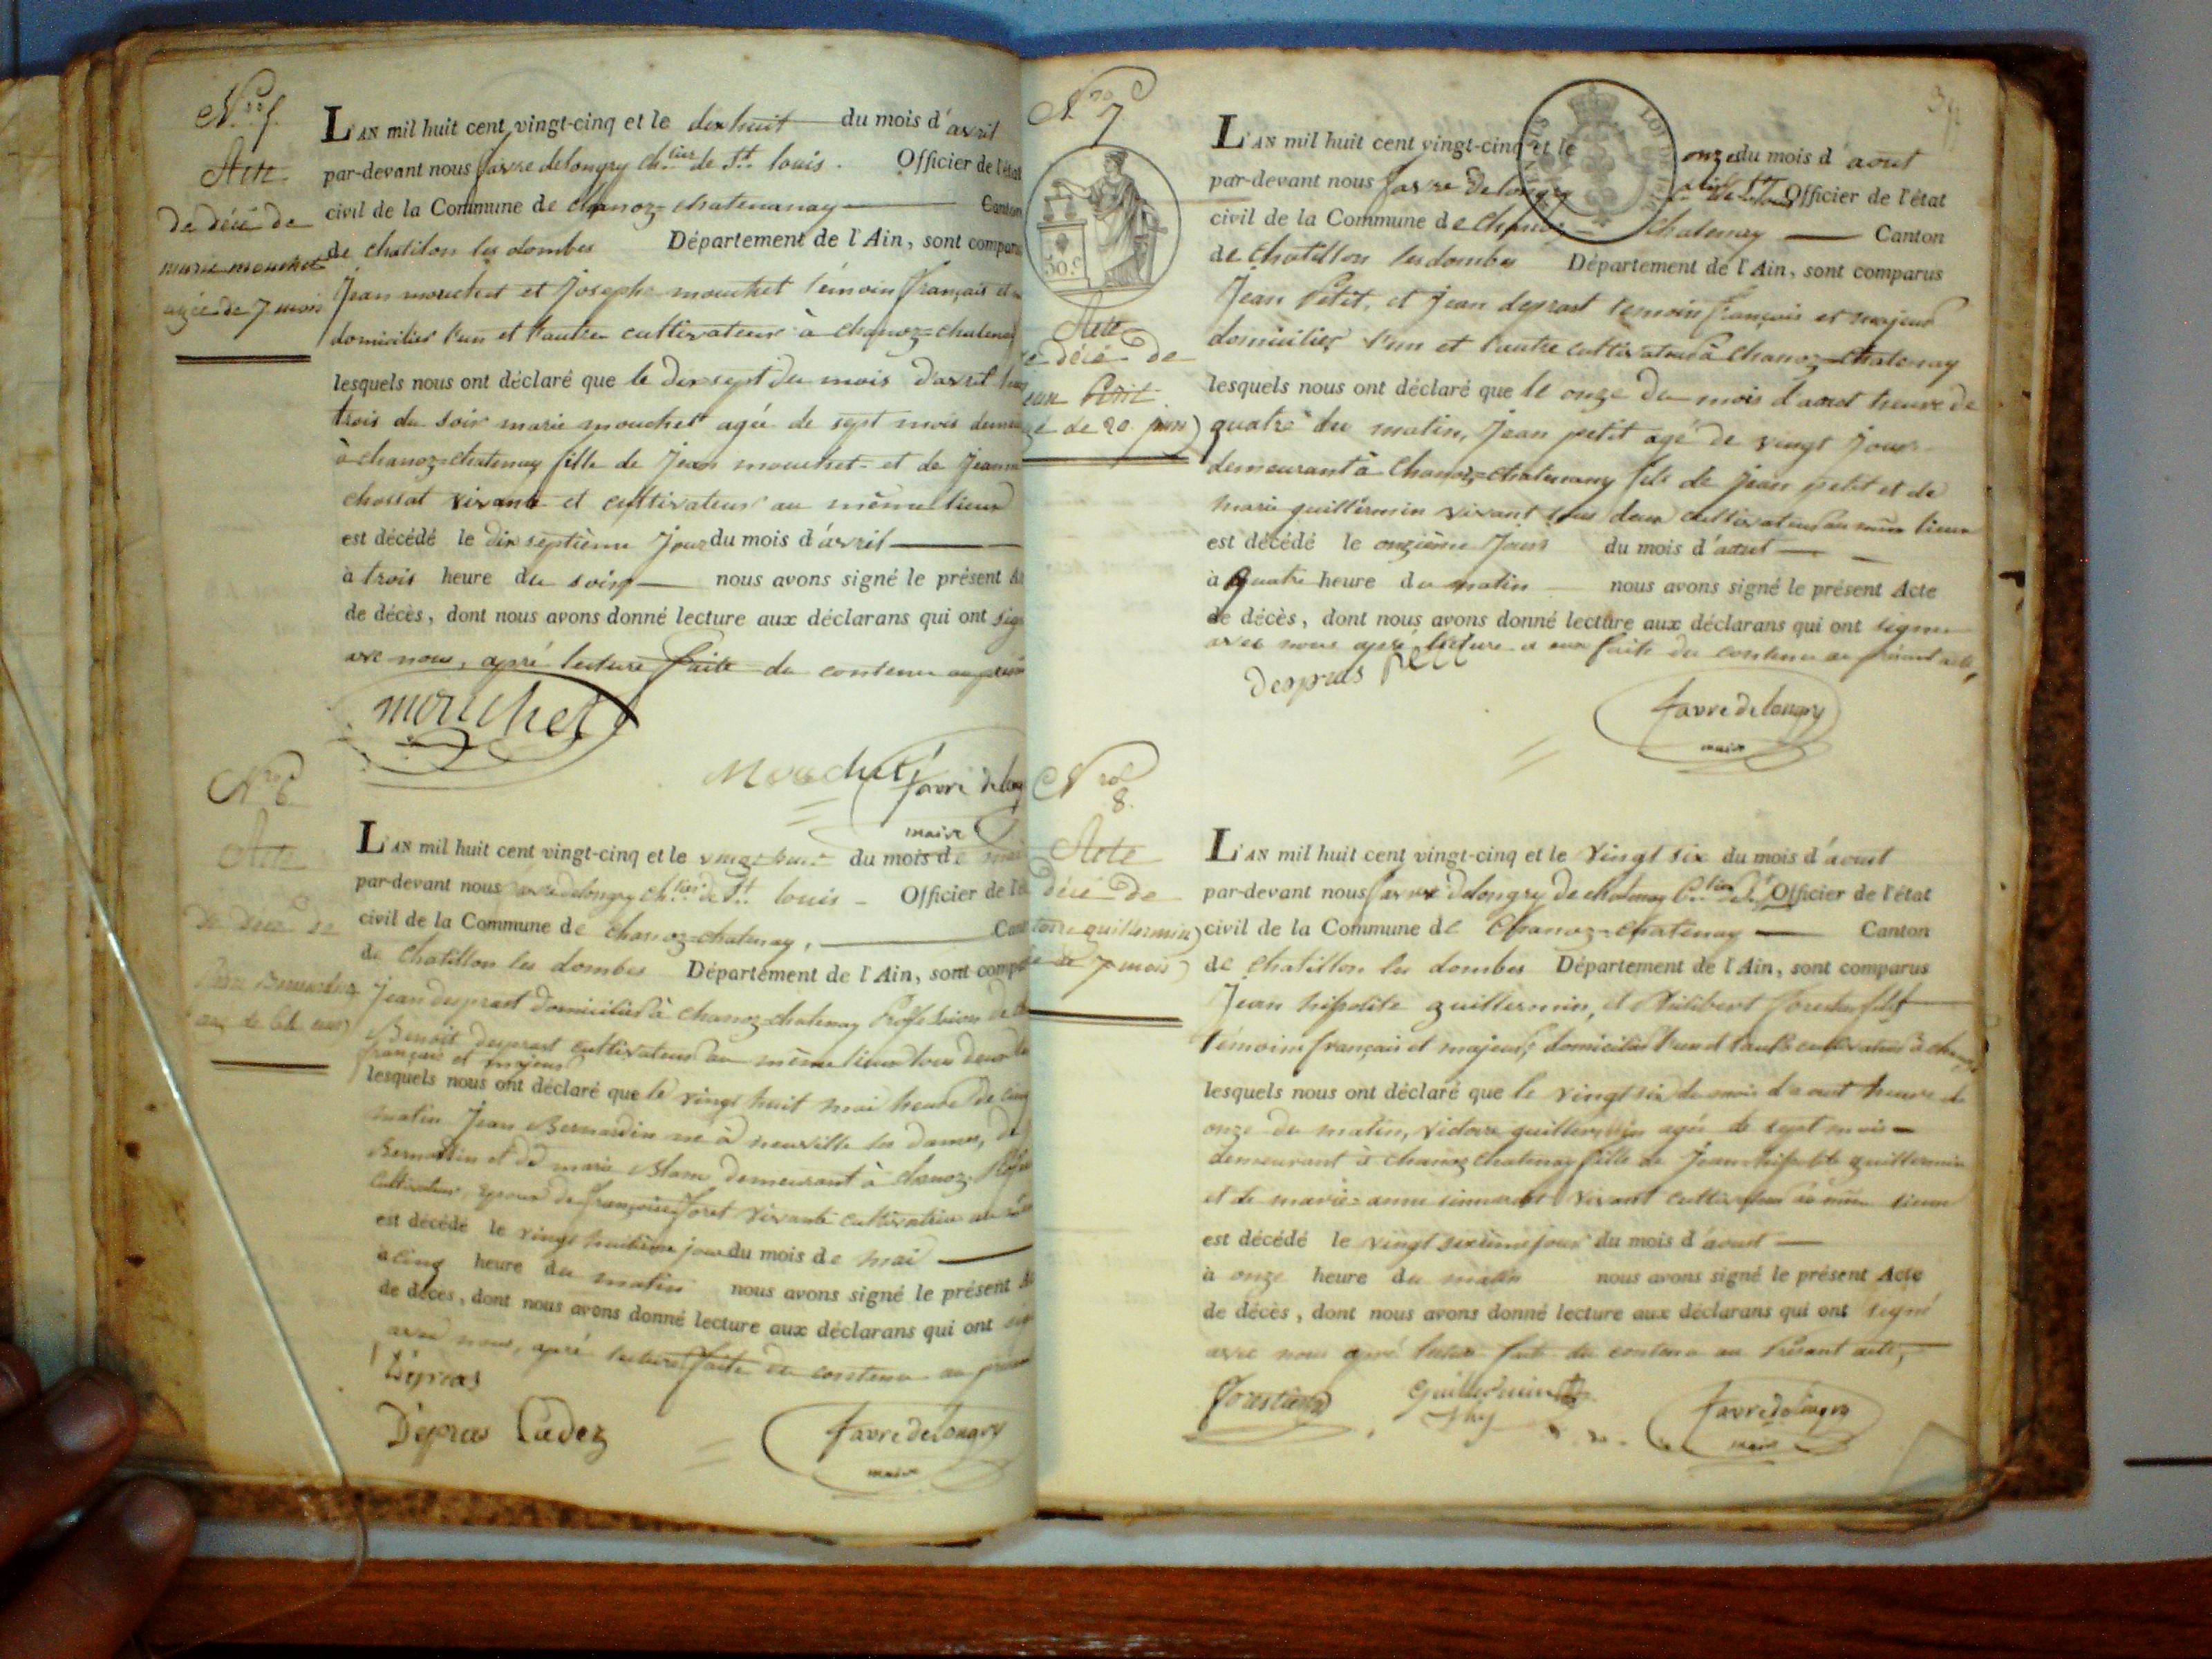 Nro 5.
Acte
de décé de
marie mouchet
agée de 7 mois
L'AN mil huit cent vingt-cinq et le dix huit du mois d'avril
par-devant nous favre delongry ch.lier de St. louis. Officier de l'état
civil de la Commune de chanoz-chatenanay Canton
de chatillon les dombes Département de l'Ain, sont comparu
Jean mouchet et Josephe mouchet témoin français et
domiciliés l'un et l'autre cultivateur à chanoz-chatenay
lesquels nous ont déclaré que le dix sept du mois d'avril
trois du soir marie mouchet agée de sept mois
à chanoz-chatenay fille de Jean mouchet et de Jeanne
chossat vivant et cultivateur au même lieux
est décédé le dix septième Jour du mois d'avril
à trois heure du soir nous avons signé le présent
de décès, dont nous avons donné lecture aux déclarans qui ont
avec nous, apré lecture faite du contenu au
mouchet
Mouchet
favre delongry
maire
Nro 6
Acte
de décé de
Jean Bernardin
L'AN mil huit cent vingt-cinq et le vingt huit du mois de mai
par-devant nous favre delongry ch.lier de St. louis Officier de l'état
civil de la Commune de chanoz-chatenay, Canton
de chatillon les dombes Département de l'Ain, sont
Jean desprast domicilié à chanoz-chatenay Profession de
Benoit desprast cultivateur au même lieux tous deux
français et majeur
lesquels nous ont déclaré que le vingt huit mai heure de cinq
matin Jean Bernardin né à neuville les dames,
Bernardin et de marie Blanc demeurant à chanoz
cultivateur, epoux de françoise foret vivante cultivatrice au
est décédé le vingt huitième jour du mois de mai
à cinq heure du matin nous avons signé le présent
de décès, dont nous avons donné lecture aux déclarans qui ont
avec nous, apré lecture faite du contenu au
Depras
Depras Cadez
favre delongry
maire
Nro 7
50.c
Acte
décé de
Petit
de 20 jour
L'AN mil huit cent vingt-cinq et le onze du mois d'aout
par-devant nous favre Delongry Officier de l'état
civil de la Commune de Chanoz - Chatenay Canton
de chatillon les dombes Département de l'Ain, sont comparus
Jean Petit, et Jean desprast temoin français et majeur
domicilier l'un et l'autre cultivateur à Chanoz-Chatenay
lesquels nous ont déclaré que le onze du mois d'aout heure de
quatre du matin, Jean petit agé de vingt Jour
demeurant à Chanoz-chatenany fils de Jean petit et de
marie guillermin vivant tous deux cultivateur au même lieux
est décédé le onzième Jour du mois d'aout
à quatre heure du matin nous avons signé le présent Acte
de décès, dont nous avons donné lecture aux déclarans qui ont signé
avec nous apré lecture a eux faite du contenu au présent acte,
Depras
favre delongry
maire
Nro 8.
Acte
décé de
guillermin
de 7 mois
L'AN mil huit cent vingt-cinq et le vingt six du mois d'aout
par-devant nous favre delongry de chatenay Officier de l'état
civil de la Commune de Chanoz-chatenay Canton
de chatillon les dombes Département de l'Ain, sont comparus
Jean hippolite guillermin, et Philibert
témoins français et majeur, domiciliés l'un et l'autre cultivateur à
lesquels nous ont déclaré que le vingt six du mois d'aout heure de
onze du matin, victoire guillermin agée de sept mois
demeurant à chanoz chatenay fille de Jean hippolite guillermin
et de marie-anne vivant cultivateur au même lieux
est décédé le vingt sixième jour du mois d'aout
à onze heure du matin nous avons signé le présent Acte
de décès, dont nous avons donné lecture aux déclarans qui ont signé
avec nous apré lecture faite du contenu au Présant acte,
Guillermin
favre delongry
maire